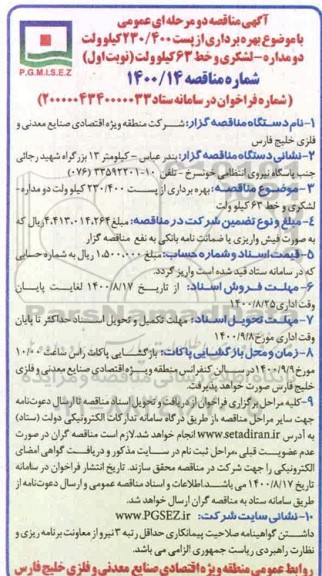 آگهی مناقصه دو مرحله ای عمومی
با موضوع بهره برداری از پست ۲۳۰/۴۰۰ کیلو ولت
دو مداره - لشکری و خط ۶۳ کیلو ولت (نوبت اول)
شماره مناقصه ۱۴۰۰/۱۴
(شماره فراخوان در سامانه ستاد ۲۰۰۰۰۰۴۳۴۰۰۰۰۳۳)
P.G.M.I.S.E.Z
۱- نام دستگاه مناقصه گزار: شرکت منطقه ویژه اقتصادی صنایع معدنی و
فلزی خلیج فارس
۲- نشانی دستگاه مناقصه گزار: بندر عباس - کیلومتر ۱۳ بزرگراه شهید رجائی
جنب پاسگاه نیروی انتظامی خونسرخ - تلفن ۱۰-۳۳۵۹۲۲۰۱ (۰۷۶)
۳- موضوع مناقصه: بهره برداری از پست ۲۳۰/۴۰۰ کیلو ولت دو مداره -
لشکری و خط ۶۳ کیلو ولت
۴- مبلغ و نوع تضمین شرکت در مناقصه: مبلغ ۴.۴۱۳.۰۱۴.۲۶۴ ریال که
به صورت فیش واریزی یا ضمانت نامه بانکی به نفع مناقصه گزار
۵- قیمت اسناد و شماره حساب: مبلغ ۱.۵۰۰.۰۰۰ ریال به شماره حسابی
که در سامانه ستاد قید شده است واریز گردد.
۶- مهلت فروش اسناد: از تاریخ ۱۴۰۰/۸/۱۷ لغایت پایان
وقت اداری ۱۴۰۰/۸/۲۵
۷- مهلت تحویل اسناد: مهلت تکمیل و تحویل اسناد حداکثر تا پایان
وقت اداری مورخ ۱۴۰۰/۹/۸
۸- زمان و محل بازگشایی پاکات: بازگشایی پاکات راس ساعت ۱۰/۰۰
مورخ ۱۴۰۰/۹/۹ در سالن کنفرانس منطقه ویژه اقتصادی صنایع معدنی و فلزی
خلیج فارس صورت خواهد پذیرفت.
۹- کلیه مراحل برگزاری فراخوان از دریافت و تحویل اسناد مناقصه تا ارسال دعوت نامه
جهت سایر مراحل مناقصه، از طریق درگاه سامانه تدارکات الکترونیکی دولت (ستاد)
به آدرس www.setadiran.ir انجام خواهد شد. لازم است مناقصه گران در صورت
عدم عضویت قبلی، مراحل ثبت نام در سایت مذکور و دریافت گواهی امضای
الکترونیکی را جهت شرکت در مناقصه محقق سازند. تاریخ انتشار فراخوان در سامانه
تاریخ ۱۴۰۰/۸/۱۷ می باشد. اطلاعات و اسناد مناقصه عمومی و ارسال دعوت نامه از
طریق سامانه ستاد به مناقصه گران ارسال خواهد شد.
۱۰- نشانی سایت شرکت: www.PGSEZ.ir
داشتن گواهینامه صلاحیت پیمانکاری حداقل رتبه ۳ نیرو از معاونت برنامه ریزی و
نظارت راهبردی ریاست جمهوری الزامی می باشد.
روابط عمومی منطقه ویژه اقتصادی صنایع معدنی و فلزی خلیج فارس